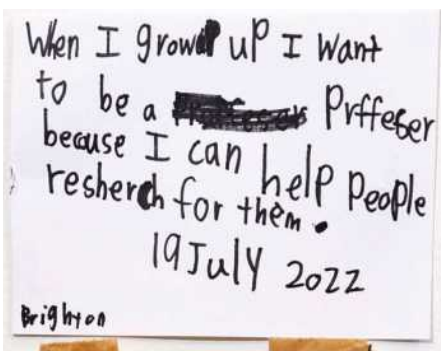 When I grow up I want
to be a Prffeser
because I can help people
reserch for them.
19 July 2022
Brighton